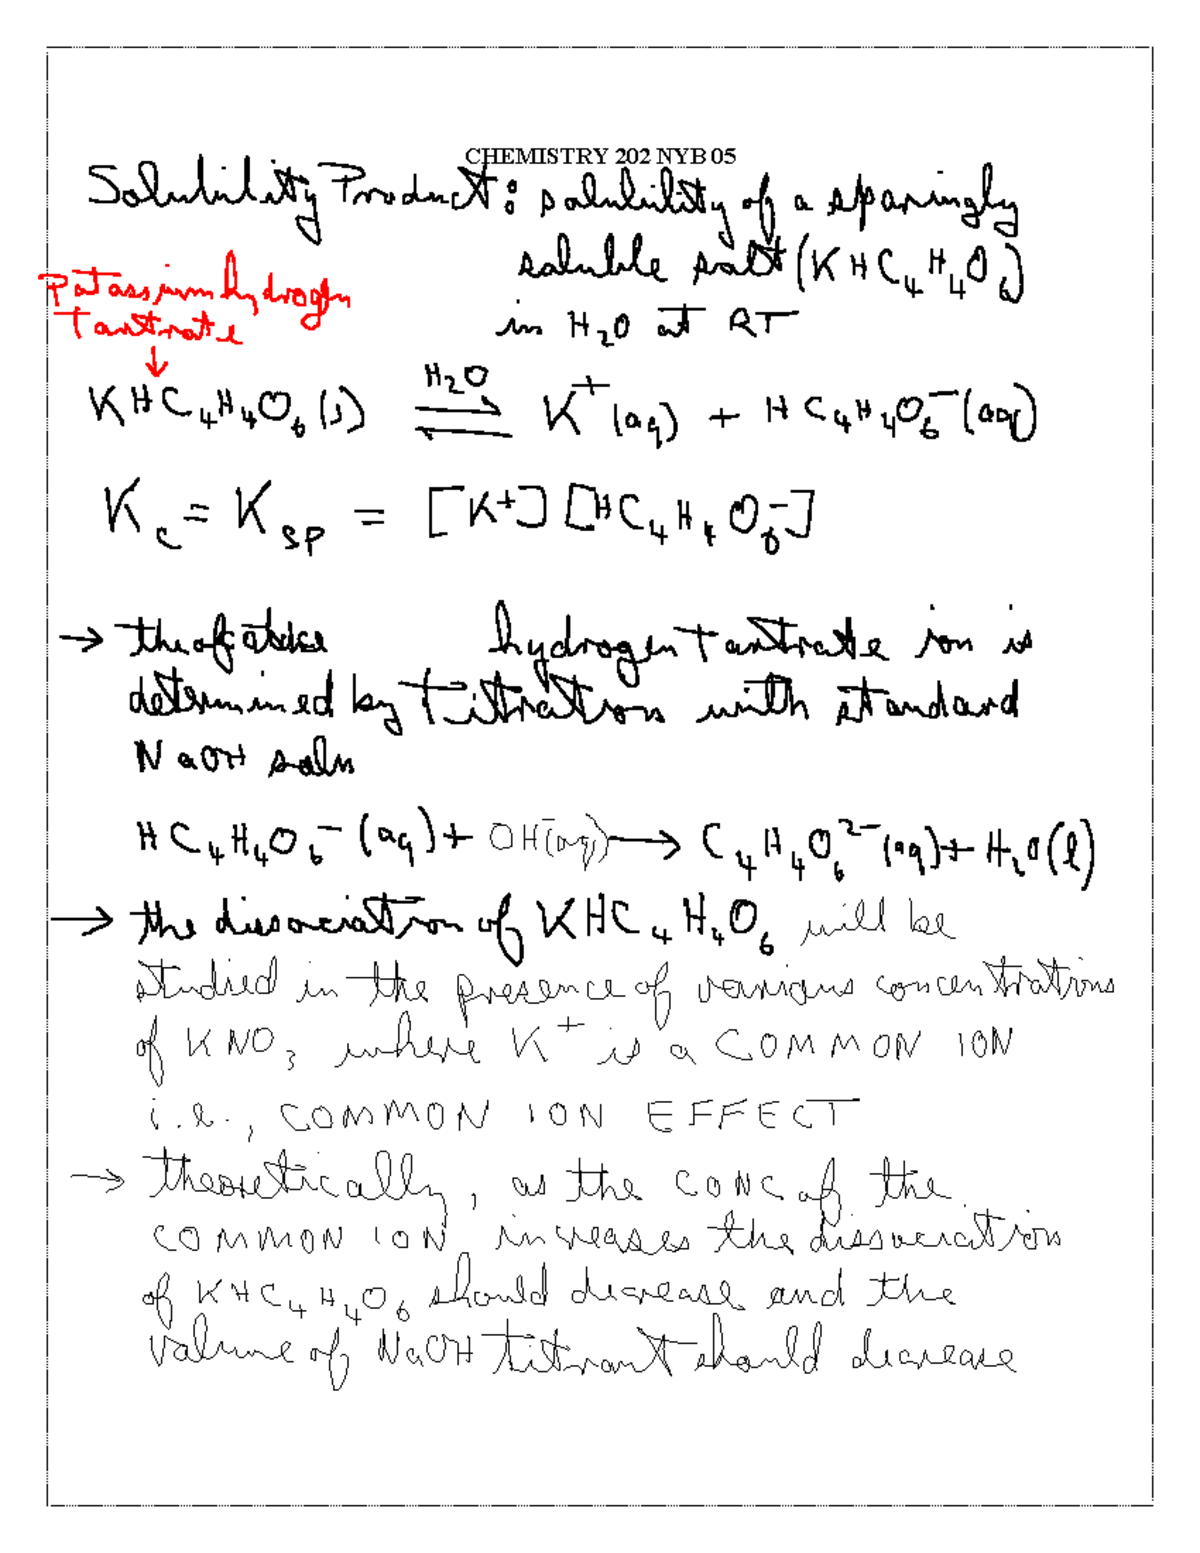 CHEMISTRY 202 NYB 05
Solubility Product: solubility of a sparingly
soluble salt (KHC₄H₄O₆)
in H₂O at RT
Potassium hydrogen
Tartrate
↓
KHC₄H₄O₆(s) ⇌ H₂O K⁺(aq) + HC₄H₄O₆⁻(aq)
K_c = K_SP = [K⁺][HC₄H₄O₆⁻]
→ the of hydrogen Tartrate ion is
determined by Titration with standard
NaOH soln
HC₄H₄O₆⁻(aq) + OH⁻(aq) → C₄H₄O₆²⁻(aq) + H₂O(l)
→ the dissociation of KHC₄H₄O₆ will be
studied in the presence of various concentrations
of KNO₃ where K⁺ is a COMMON ION
i.e., COMMON ION EFFECT
→ theoretically, as the CONC of the
COMMON ION increases the dissociation
of KHC₄H₄O₆ should decrease and the
volume of NaOH titrant should decrease